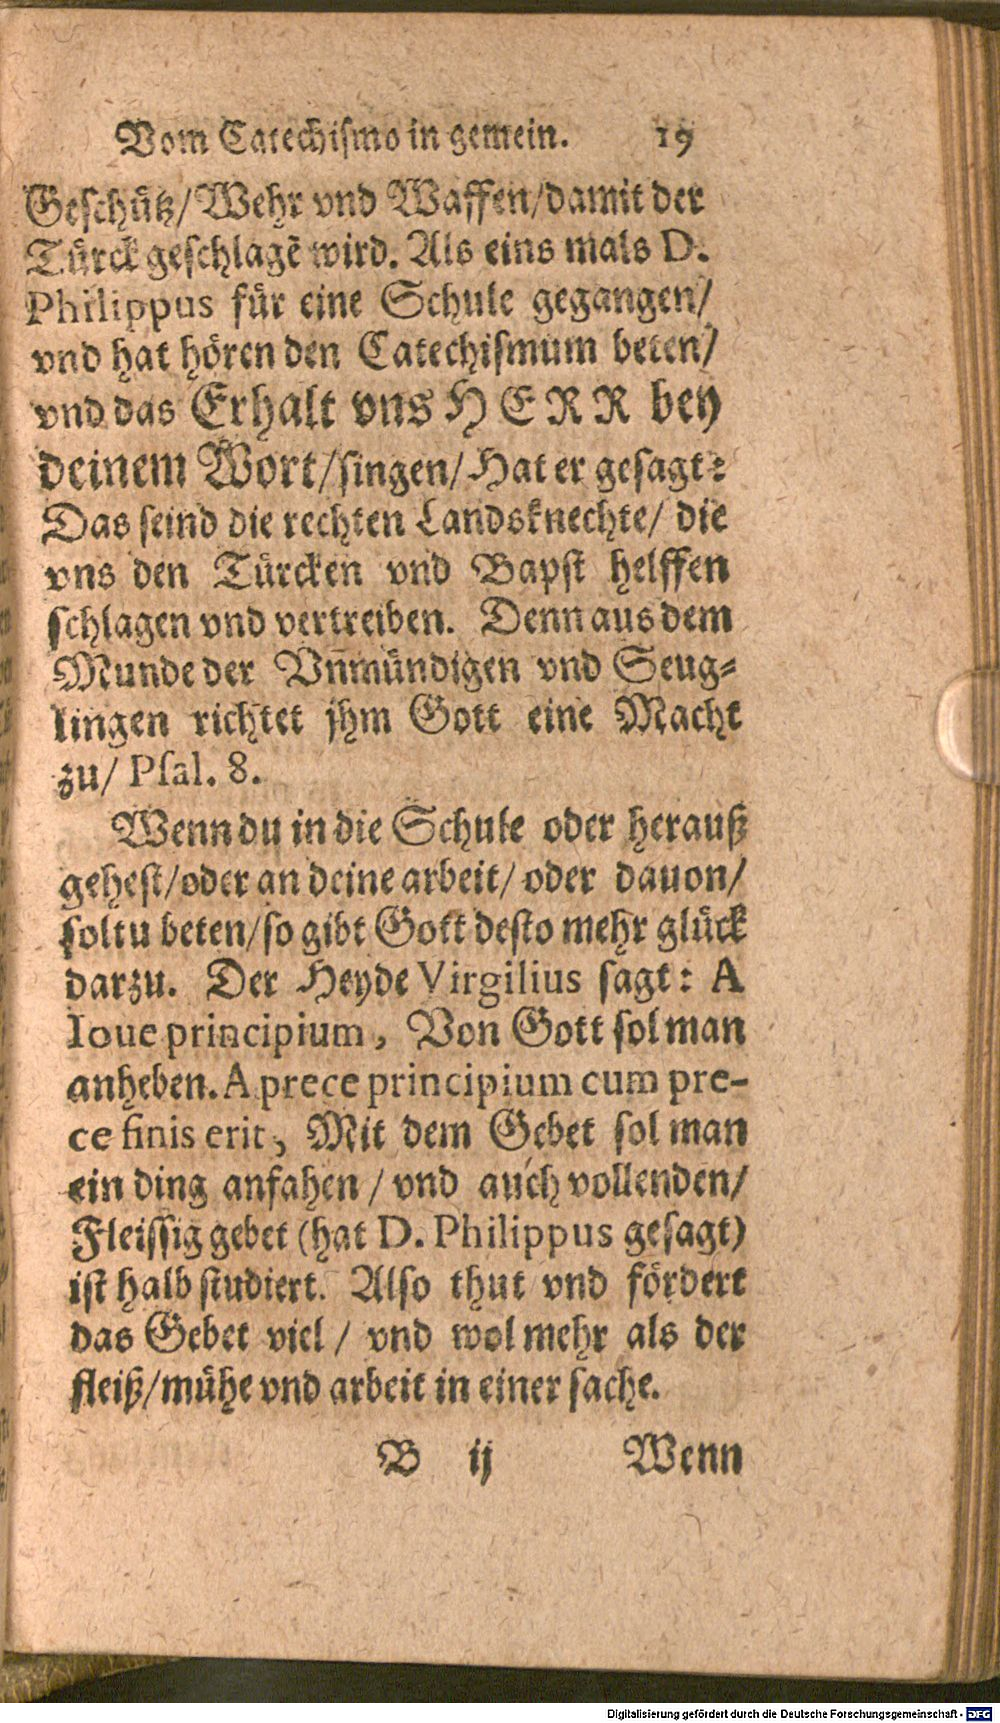 Vom Catechiſmo in gemein. 19
Geſchütz/ Wehr vnd Waffen/ damit der
Türck geſchlagẽ wird. Als eins mals D.
Philippus für eine Schule gegangen/
vnd hat hören den Catechiſmum beten/
vnd das Erhalt vns HERR bey
deinem Wort/ ſingen/ Hat er geſagt:
Das ſeind die rechten Landsknechte/ die
vns den Türcken vnd Bapſt helffen
ſchlagen vnd vertreiben. Denn aus dem
Munde der Vn̄mündigen vnd Seug-
lingen richtet jhm Gott eine Macht
zu/ Pſal. 8.
Wenn du in die Schule oder herauß
geheſt/ oder an deine arbeit/ oder dauon/
ſoltu beten/ ſo gibt Gott deſto mehr glück
darzu. Der Heyde Virgilius ſagt: A
Ioue principium, Von Gott ſol man
anheben. A prece principium cum pre-
ce finis erit, Mit dem Gebet ſol man
ein ding anfahen / vnd auch vollenden/
Fleiſſig gebet (hat D. Philippus geſagt)
iſt halb ſtudiert. Alſo thut vnd fördert
das Gebet viel / vnd wol mehr als der
fleiß/ mühe vnd arbeit in einer ſache.
B ij Wenn
Digitalisierung gefördert durch die Deutsche Forschungsgemeinschaft - DFG